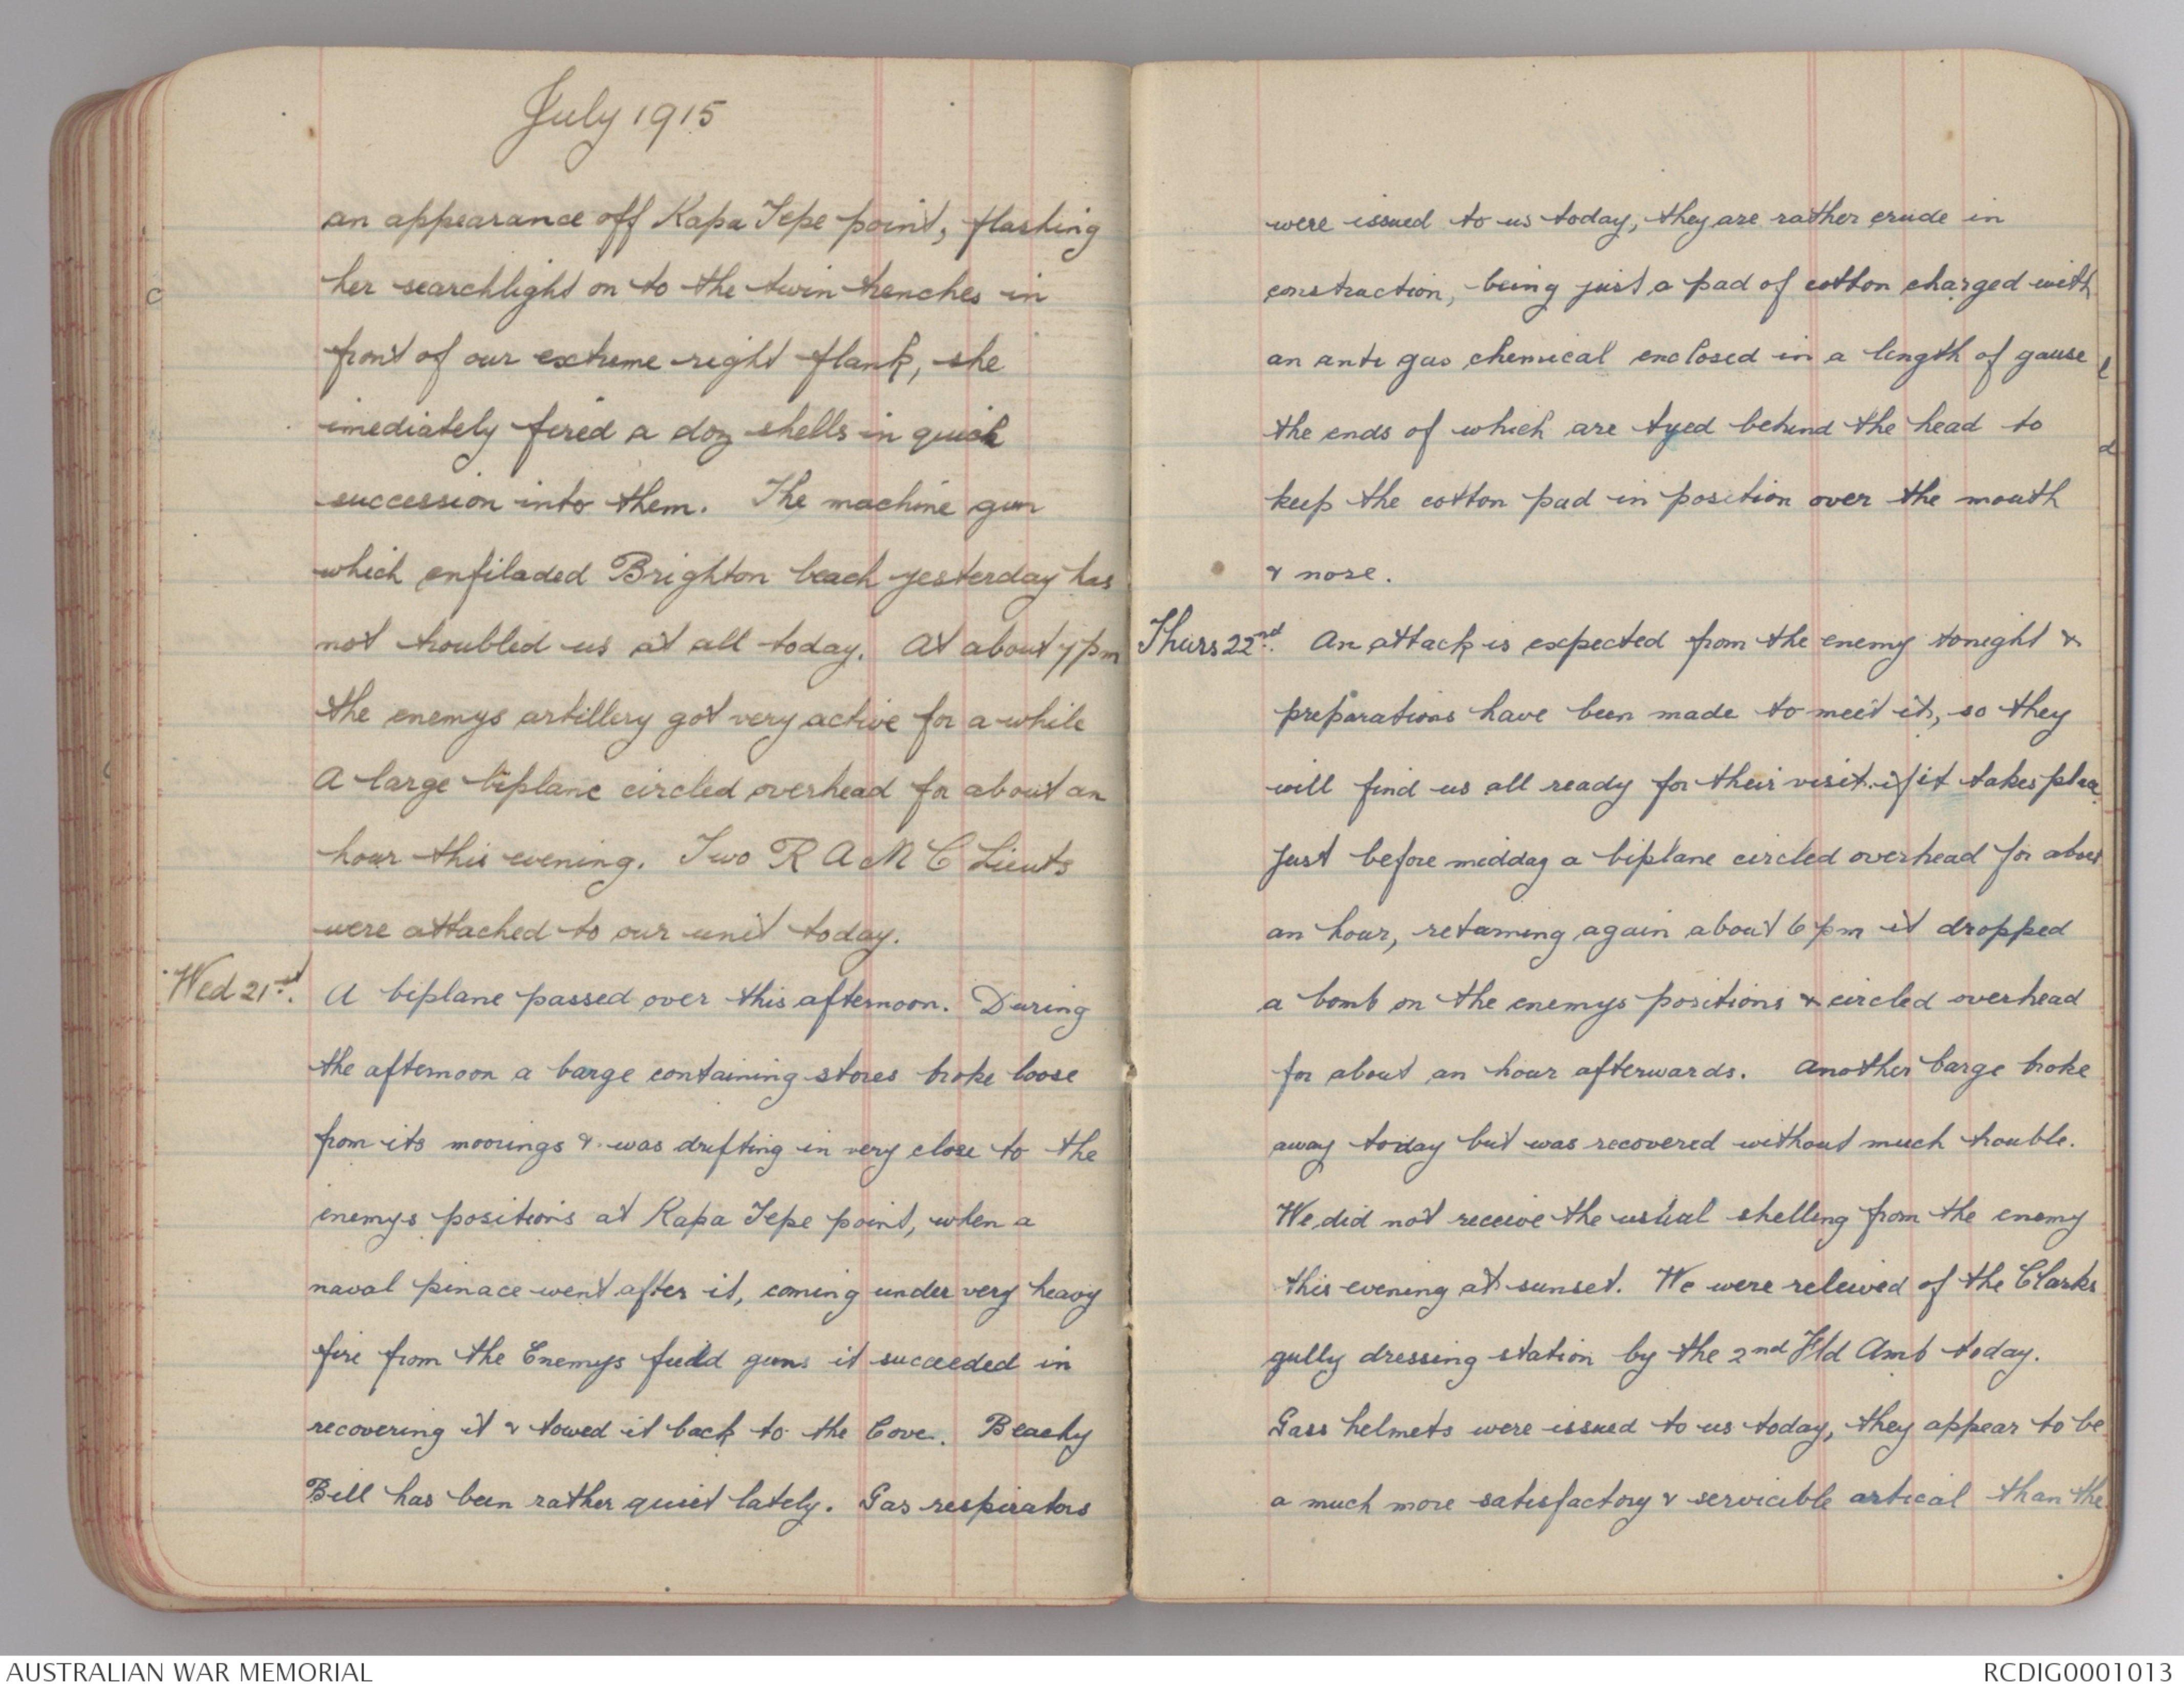 July 1915
an appearance off Kapa Tepe point, flashing
her searchlight on to the twin trenches in
front of our extreme right flank, she
imediately fired a doz shells in quick
succession into them. The machine gun
which enfiladed Brighton beach yesterday has
not troubled us at all today. At about 7 pm
the enemys artillery got very active for a while
A large biplane circled overhead for about an
hour this evening. Two R A M C Lieuts
were attached to our unit today.
Wed 21st. A biplane passed over this afternoon. During
the afternoon a barge containing stores broke loose
from its moorings & was drifting in very close to the
enemys positions at Kapa Tepe point, when a
naval pinace went after it, coming under very heavy
fire from the Enemys field guns it succeeded in
recovering it & towed it back to the Cove. Beachy
Bill has been rather quiet lately. Gas respirators
were issued to us today, they are rather crude in
construction, being just a pad of cotton charged with
an anti gas chemical enclosed in a length of gause
the ends of which are tyed behind the head to
keep the cotton pad in position over the mouth
& nose.
Thurs 22nd. An attack is expected from the enemy tonight &
preparations have been made to meet it, so they
will find us all ready for their visit if it takes place
Just before midday a biplane circled overhead for about
an hour, returning again about 6 pm it dropped
a bomb on the enemys positions & circled overhead
for about an hour afterwards. Another barge broke
away today but was recovered without much trouble.
We did not receive the usual shelling from the enemy
this evening at sunset. We were releived of the Clarks
gully dressing station by the 2nd Fld Amb today.
Gass helmets were issued to us today, they appear to be
a much more satisfactory & servicible artical than the
AUSTRALIAN WAR MEMORIAL
RCDIG0001013